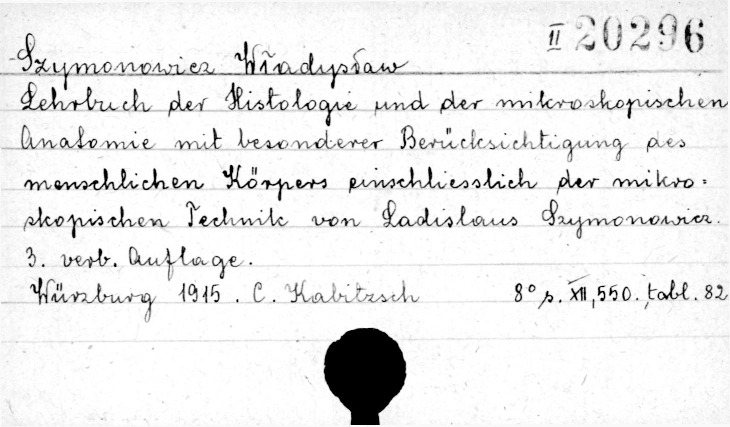 II 20296
Szymonowicz Władysław
Lehrbuch der Histologie und der mikroskopischen
Anatomie mit besonderer Berücksichtigung des
menschlichen Körpers einschliesslich der mikro=
skopischen Technik von Ladislaus Szymonowicz.
3. verb. Auflage.
Würzburg 1915. C. Kabitzsch 8° s. XII, 550. tabl. 82